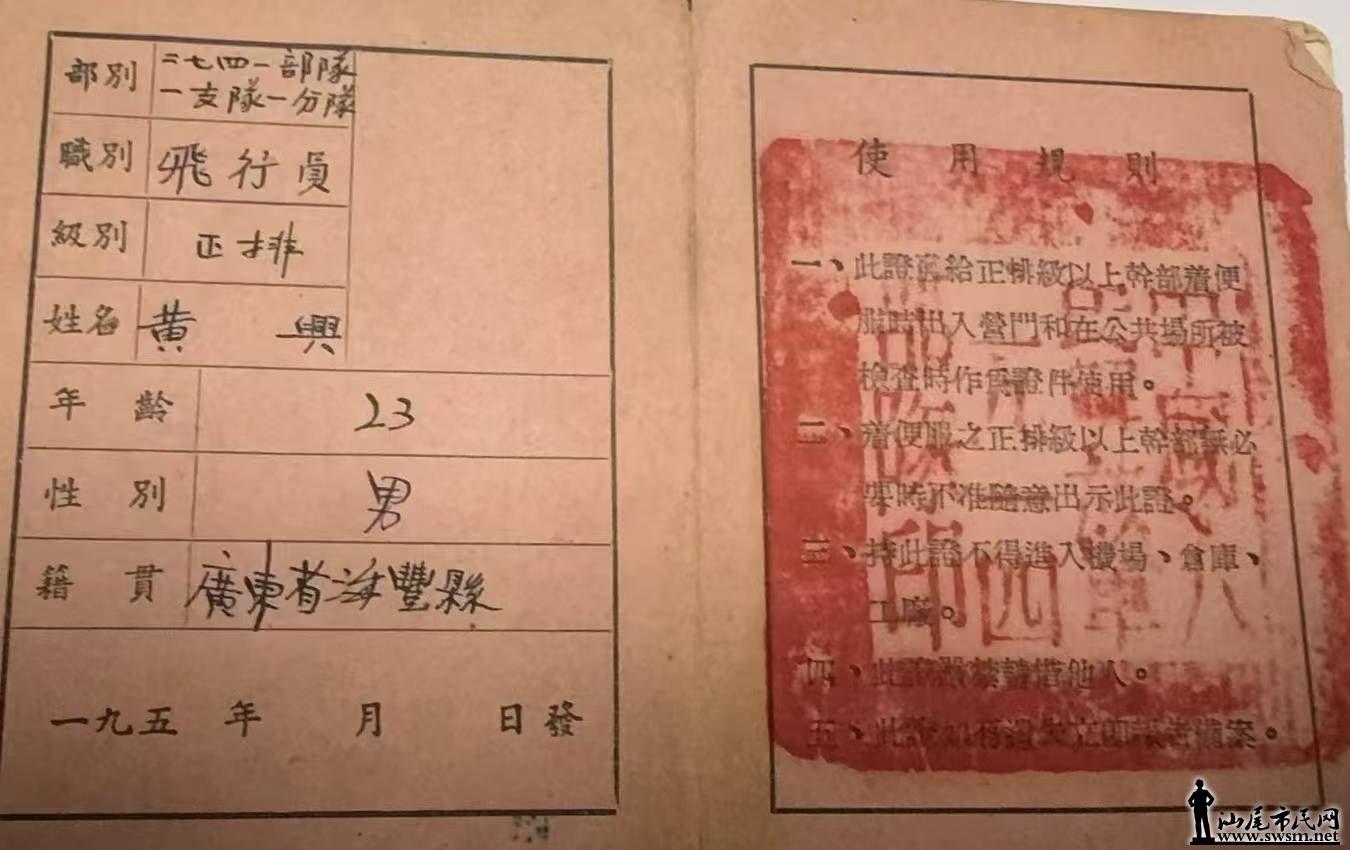 部別 二七四一部隊
一支隊一分隊
職別 飛行員
級別 正排
姓名 黄興
年齡 23
性別 男
籍貫 廣東省海豐縣
一九五 年 月 日發
使用規則
一、此證發給正排級以上幹部着便
服時出入營門和在公共場所被
檢查時作為證件使用。
二、着便服之正排級以上幹部無必
要時不准隨意出示此證。
三、持此證不得進入機場、倉庫、
工廠。
四、此證嚴禁轉借他人。
五、此證如有遺失立即報告備案。
汕尾市民网
www.swsm.net